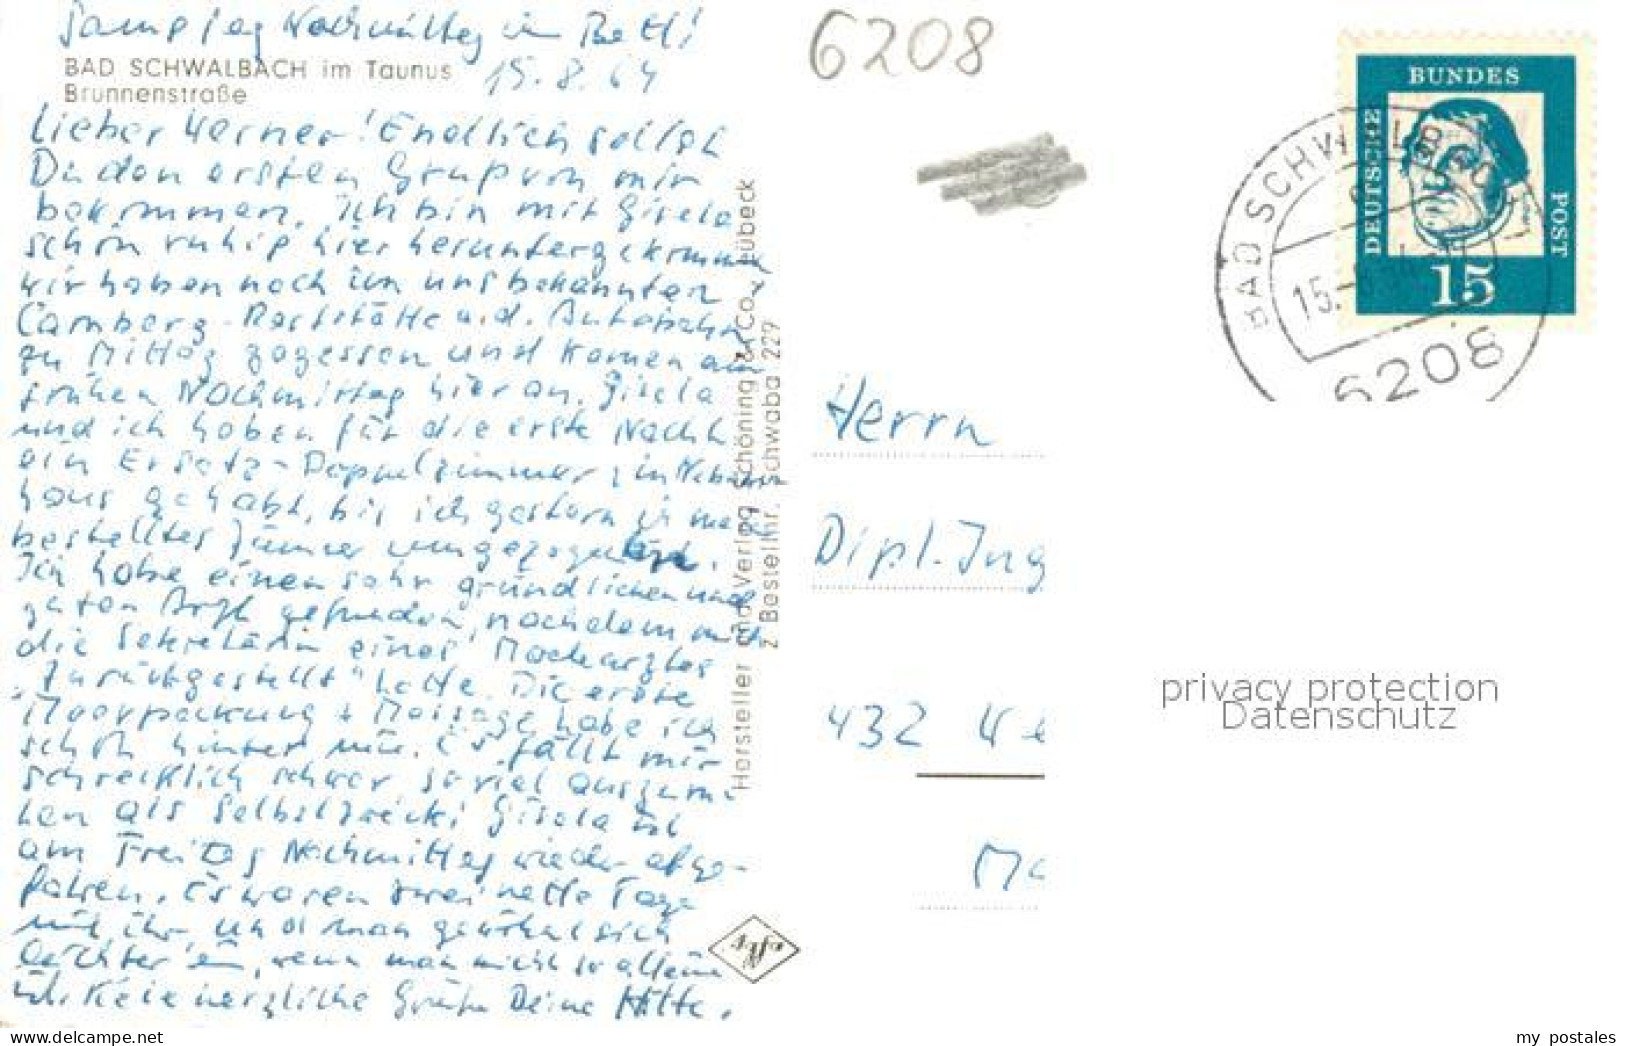 Samstag Nachmittag im Bett!
BAD SCHWALBACH im Taunus
15.8.64
Brunnenstraße
Lieber Werner! Endlich sollst
Du den ersten Gruß von mir
bekommen. Ich bin mit Gisela
schön ruhig hier heruntergekommen
wir haben noch im uns bekannten
Camberg-Raststätte a.d. Autobahn
zu Mittag gegessen und kamen am
frühen Nachmittag hier an. Gisela
und ich haben für die erste Nacht
ein Ersatz-Doppelzimmer im Neben
haus gehabt, bis ich gestern in mein
bestelltes Zimmer umgezogen bin.
Ich habe einen sehr gründlichen und
guten Arzt gefunden, nachdem mich
die Sekretärin eines Modearztes
"zurückgestellt" hatte. Die erste
Moorpackung + Massage habe ich
schon hinter mir. Es fällt mir
schrecklich schwer soviel auszuru-
hen als Selbstzweck! Gisela ist
am Freitag Nachmittag wieder abge-
fahren. Es waren zwei nette Tage
mit ihr, und man gewöhnt sich
leichter ein, wenn man nicht so alleine
ist. Viele herzliche Grüße Deine
Hersteller und Verlag Schöning & Co., Lübeck
Z Bestellnr. Schwaba 229
6208
BUNDES
DEUTSCHE
POST
15
BAD SCHWALBACH
15.-8.
6208
Herrn
Dipl. Ing
432
privacy protection
Datenschutz
www.ansichtskartenversand.com
my postales